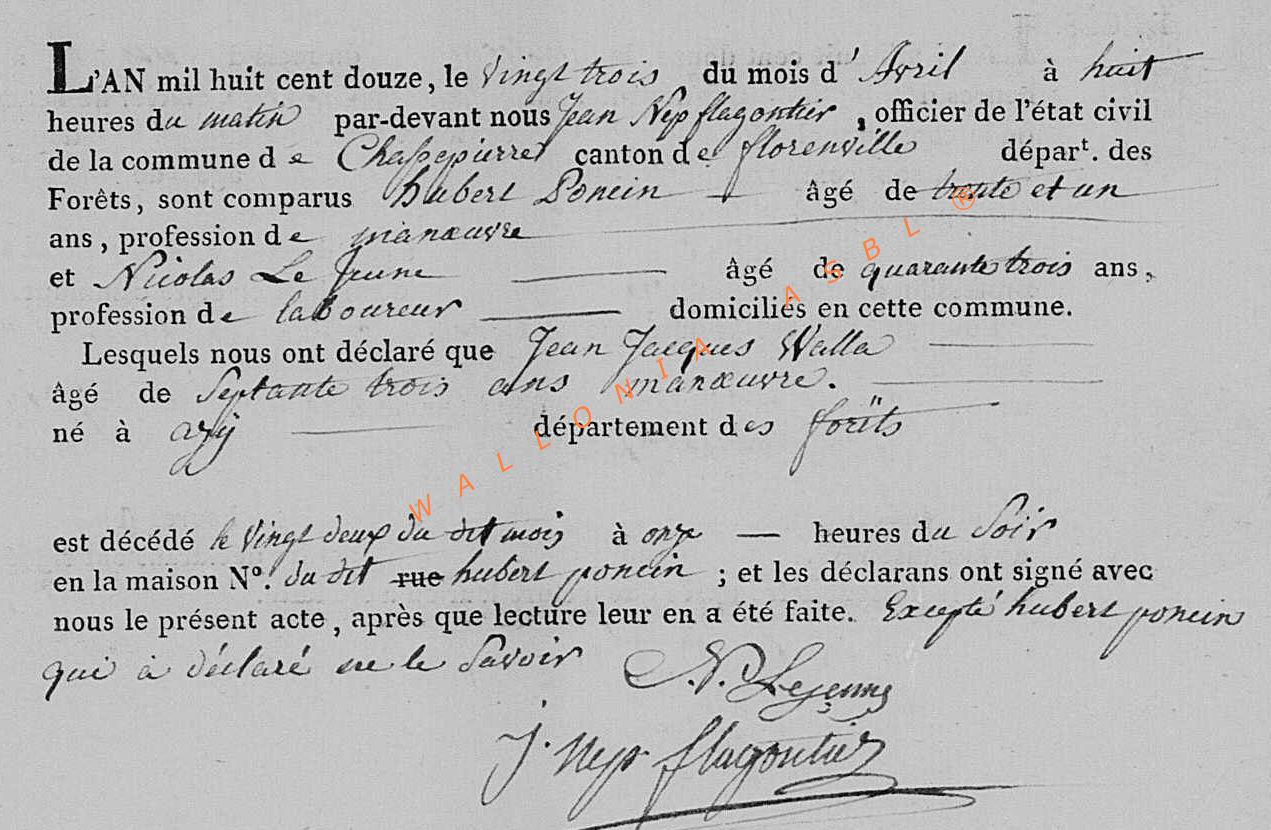 L'AN mil huit cent douze, le vingt trois du mois d'Avril à huit
heures du matin par-devant nous Jean Nep flagontier, officier de l'état civil
de la commune de Chassepierre canton de florenville départ. des
Forêts, sont comparus hubert Poncin âgé de trente et un
ans, profession de manœuvre
et Nicolas Le Jeune âgé de quarante trois ans,
profession de laboureur domiciliés en cette commune.
Lesquels nous ont déclaré que Jean Jacques Walla
âgé de Septante trois ans manœuvre.
né à azÿ département des forêts
est décédé le vingt deux du dit mois à onze heures du Soir
en la maison Nº. du dit rue hubert poncin ; et les déclarans ont signé avec
nous le présent acte, après que lecture leur en a été faite. Excepté hubert poncin
qui à déclaré ne le Savoir
N. Lejeune
J. Nep flagontier
WALLONIA ASBL ®